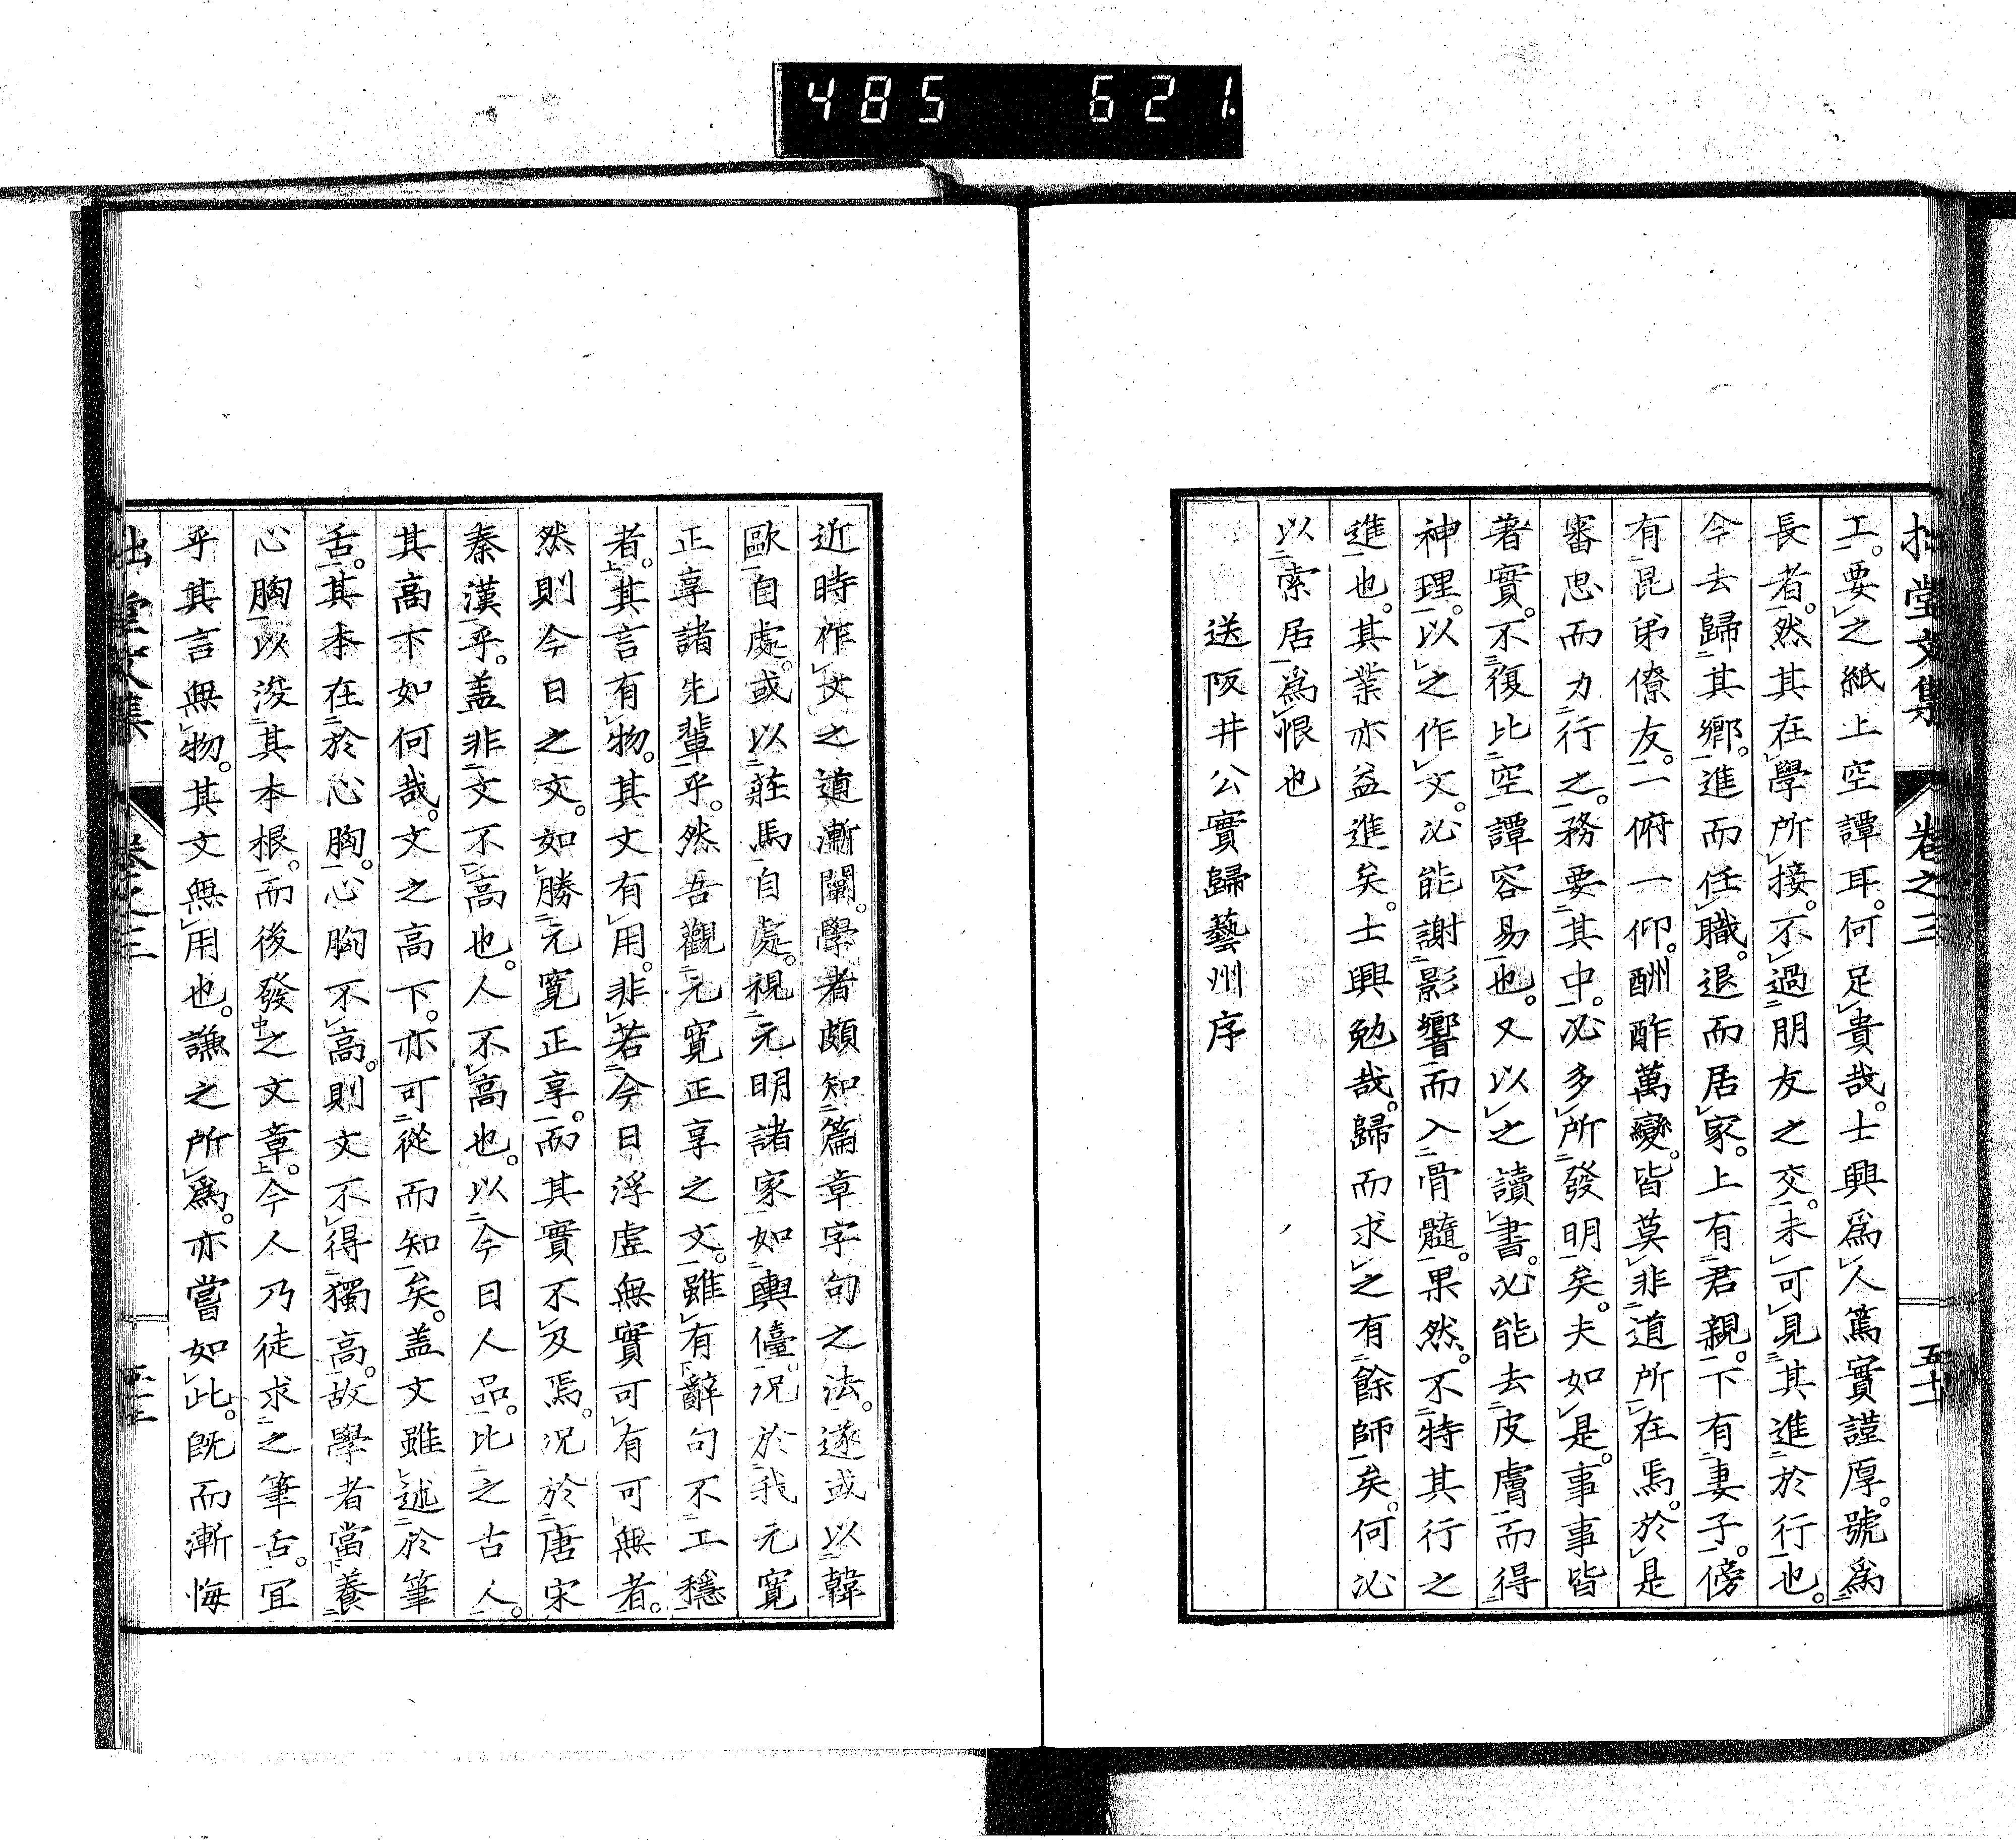 485 621.
拙堂文集 卷之三 五十一
工。要之紙上空譚耳。何足貴哉。士興爲人篤實謹厚。號爲
長者。然其在學所接。不過朋友之交。未可見其進於行也。
今去歸其鄉。進而任職。退而居家。上有君親。下有妻子。傍
有昆弟僚友。一俯一仰。酬酢萬變。皆莫非道所在焉。於是
審思而力行之。務要其中。必多所發明矣。夫如是。事事皆
著實。不復比空譚容易也。又以之讀書。必能去皮膚而得
神理。以之作文。必能謝影響而入骨髓。果然。不特其行之
進也。其業亦益進矣。士興勉哉。歸而求之有餘師矣。何必
以索居爲恨也
送阪井公實歸藝州序
近時作文之道漸闢。學者頗知篇章字句之法。遂或以韓
歐自處。或以莊馬自處。視元明諸家如輿儓。況於我元寬
正享諸先輩乎。然吾觀元寬正享之文。雖有辭句不工穩
者。其言有物。其文有用。非若今日浮虛無實可有可無者。
然則今日之文。如勝元寬正享。而其實不及焉。況於唐宋
秦漢乎。蓋非文不高也。人不高也。以今日人品。比之古人。
其高下如何哉。文之高下。亦可從而知矣。蓋文雖述於筆
舌。其本在於心胸。心胸不高。則文不得獨高。故學者當養
心胸以浚其本根。而後發之文章。今人乃徒求之筆舌。宜
乎其言無物。其文無用也。謙之所爲。亦嘗如此。旣而漸悔
拙堂文集 卷之三